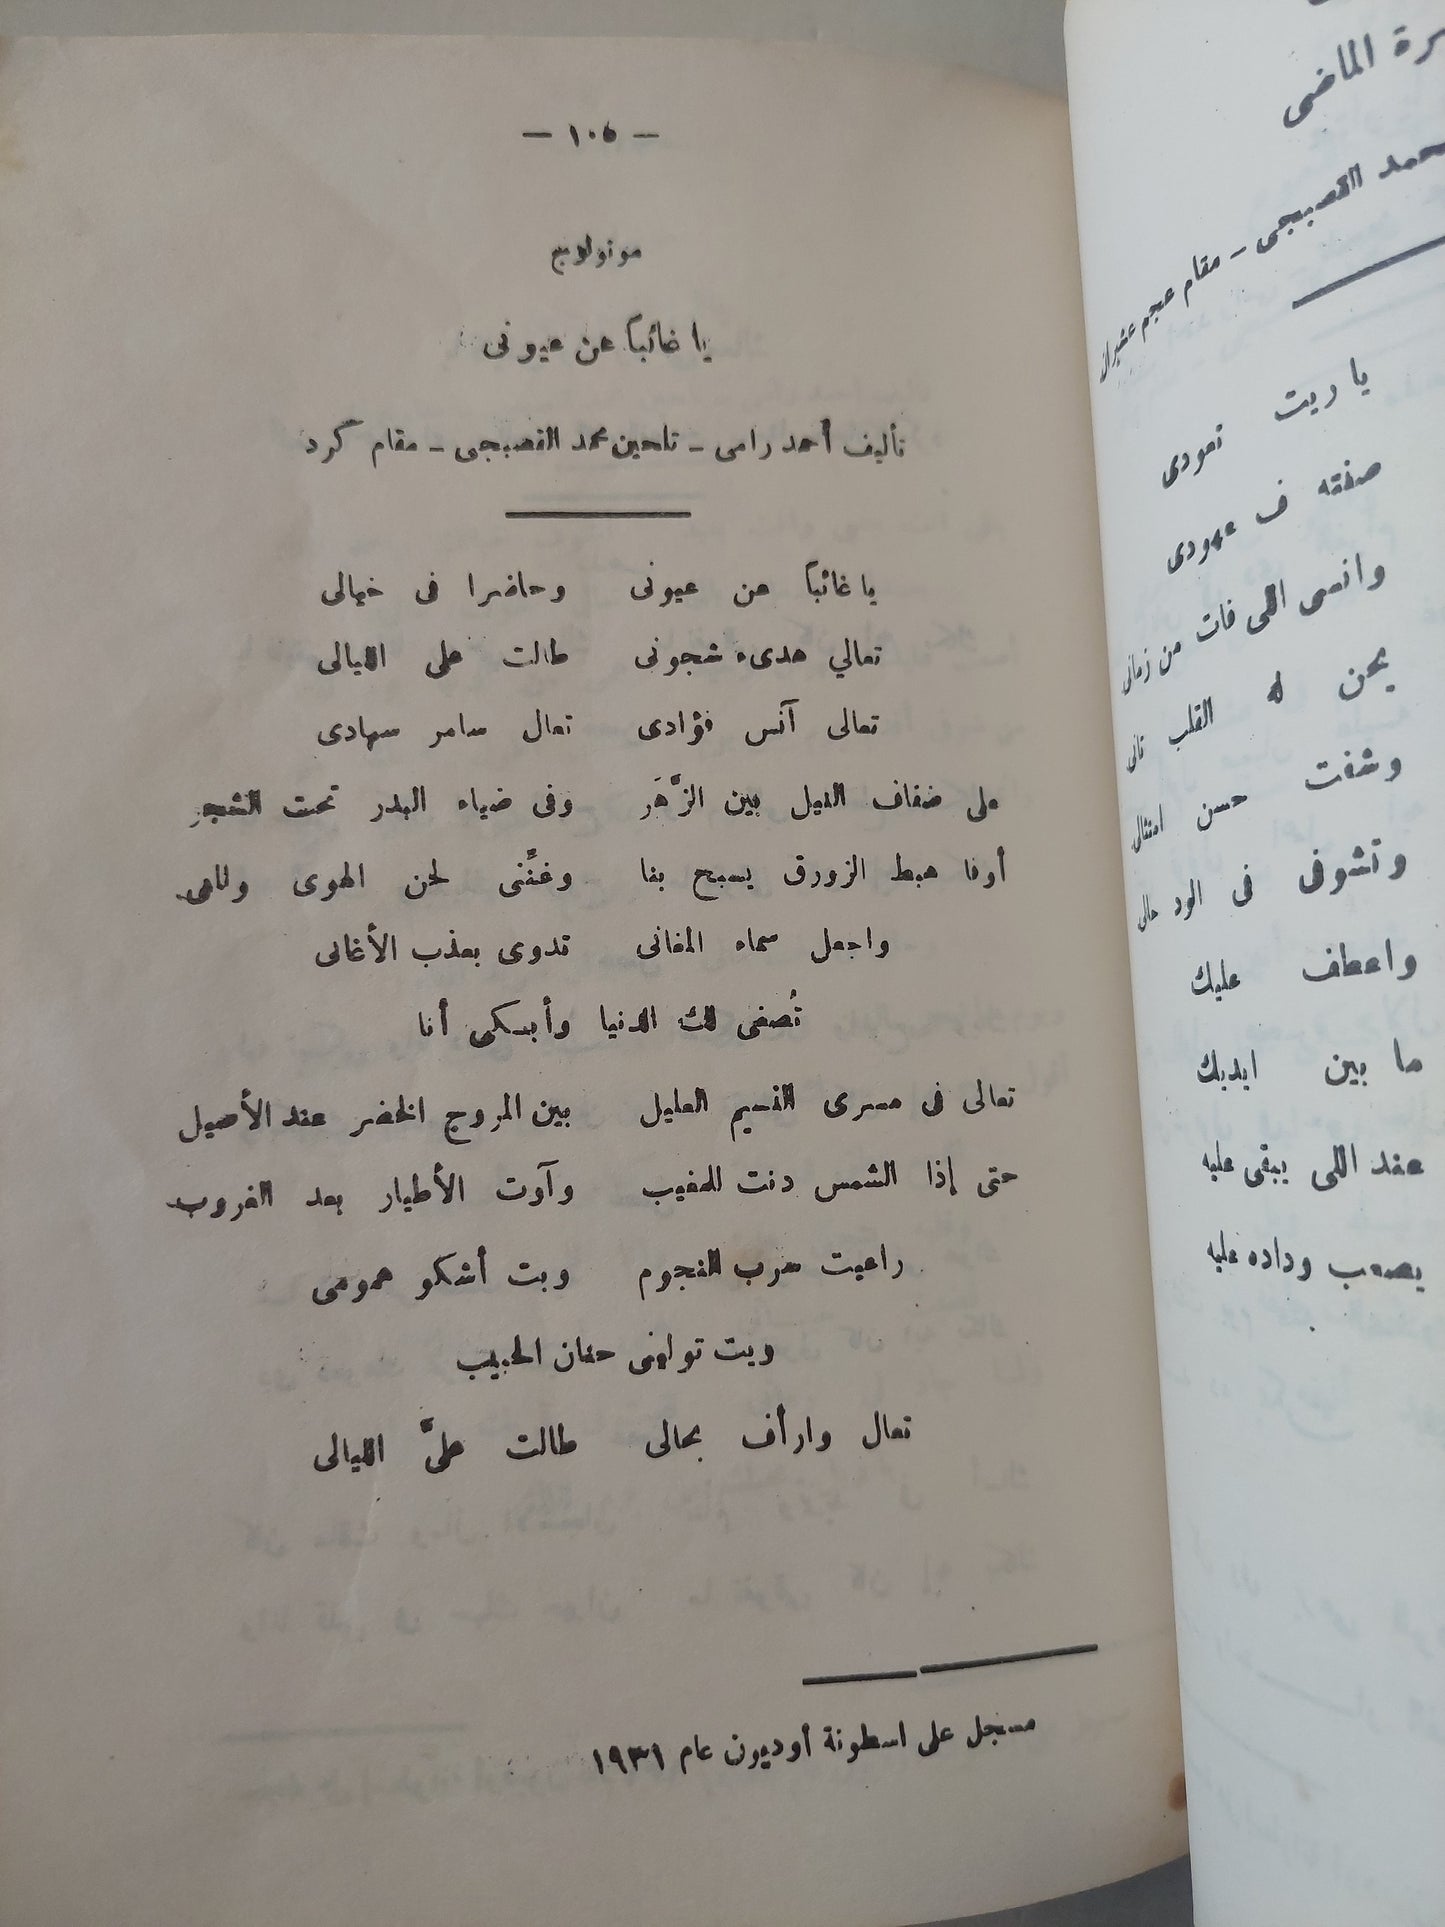 — ١٠٥ —
مونولوج
يا غائباً عن عيونى
تأليف أحمد رامى – تلحين محمد القصبجى – مقام كرد
يا غائباً عن عيونى وحاضرا فى خيالى
تعالي هدىء شجونى طالت على الليالى
تعالى آنس فؤادى تعال سامر سهادى
على ضفاف النيل بين الزَّهَر وفى ضياء البدر تحت الشجر
أوفا هبط الزورق يسبح بنا وغنِّنى لحن الهوى
واجعل سماء المغانى تدوى بعذب الأغانى
تُصغى لك الدنيا وأبكى أنا
تعالى فى مسرى النسيم العليل بين المروج الخضر عند الأصيل
حتى إذا الشمس دنت للمغيب وآوت الأطيار بعد الغروب
راعيت سرب النجوم وبت أشكو همومى
وبت توليني حنان الحبيب
تعال وارأف بحالى طالت علىَّ الليالى
مسجل على اسطونة أوديون عام ١٩٣١
رة الماضى
محمد القصبجى – مقام عجم عشيران
ياريت تعودى
صفقه ف عهودى
وانسى اللى فات من زمانى
يحن له القلب تانى
وشفت حسن امتثالى
وتشوفى فى الود حالى
واعطف عليك
ما بين ايديك
عند اللى يبقى عليه
يصعب وداده عليه